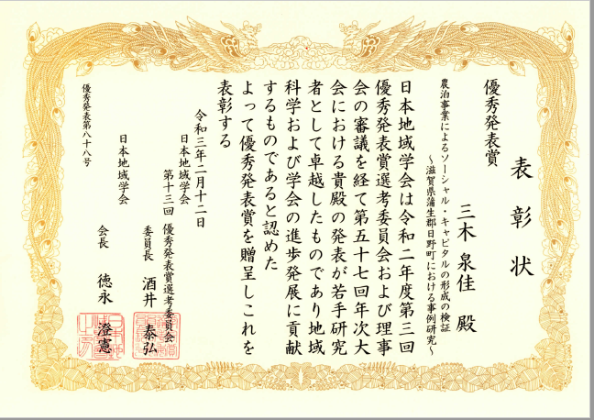 表彰状
優秀発表賞
三木 泉佳 殿
農泊事業によるソーシャル・キャピタルの形成の検証
～滋賀県蒲生郡日野町における事例研究～
日本地域学会は令和二年度第三回
優秀発表賞選考委員会および理事
会の審議を経て第五十七回年次大
会における貴殿の発表が若手研究
者として卓越したものであり地域
科学および学会の進歩発展に貢献
するものであると認めた
よって優秀発表賞を贈呈しこれを
表彰する
令和三年二月十二日
日本地域学会
第十三回 優秀発表賞選考委員会
委員長 酒井 泰弘
日本地域学会
会長 徳永 澄憲
優秀発表第八十八号